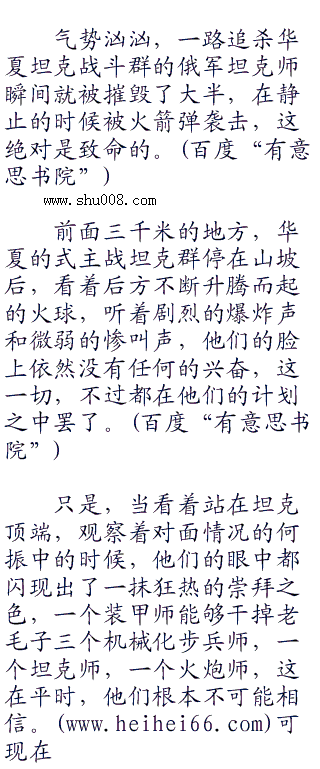 气势汹汹，一路追杀华
夏坦克战斗群的俄军坦克师
瞬间就被摧毁了大半，在静
止的时候被火箭弹袭击，这
绝对是致命的。(百度“有意
思书院”)
www.shu008.com
前面三千米的地方，华
夏的式主战坦克群停在山坡
后，看着后方不断升腾而起
的火球，听着剧烈的爆炸声
和微弱的惨叫声，他们的脸
上依然没有任何的兴奋，这
一切，不过都在他们的计划
之中罢了。(百度“有意思书
院”)
只是，当看着站在坦克
顶端，观察着对面情况的何
振中的时候，他们的眼中都
闪现出了一抹狂热的崇拜之
色，一个装甲师能够干掉老
毛子三个机械化步兵师，一
个坦克师，一个火炮师，这
在平时，他们根本不可能相
信。(www.heihei66.com)可
现在